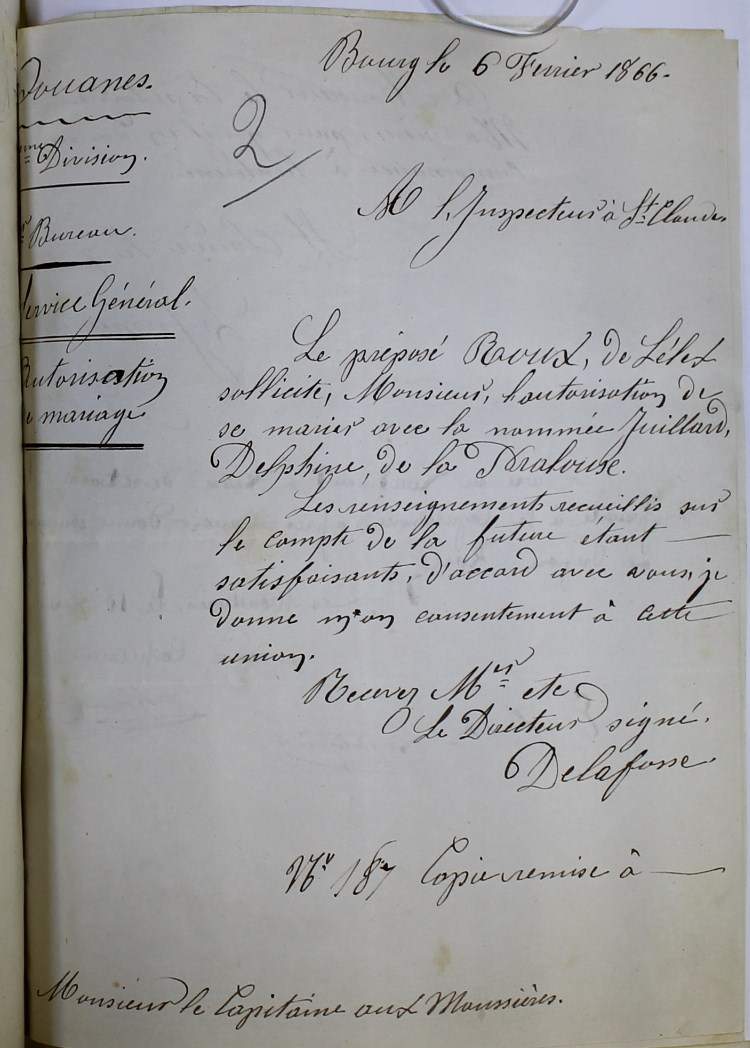 Bourg le 6 Fevrier 1866.
Douanes.
2
me Division.
M l'Inspecteur à St Claude.
Bureau.
Service Général.
Autorisation
mariage
Le préposé Roux, de Lélex
sollicite, Monsieur, l'autorisation de
se marier avec la nommée Juillard,
Delphine, de la
Les renseignements recueillis sur
le compte de la future étant —
satisfaisants, d'accord avec vous, je
donne mon consentement à cette
union.
Recevez Mr etc
Le Directeur signé.
Delafosse.
No 187 Copie remise à —
Monsieur le Capitaine aux Moussières.